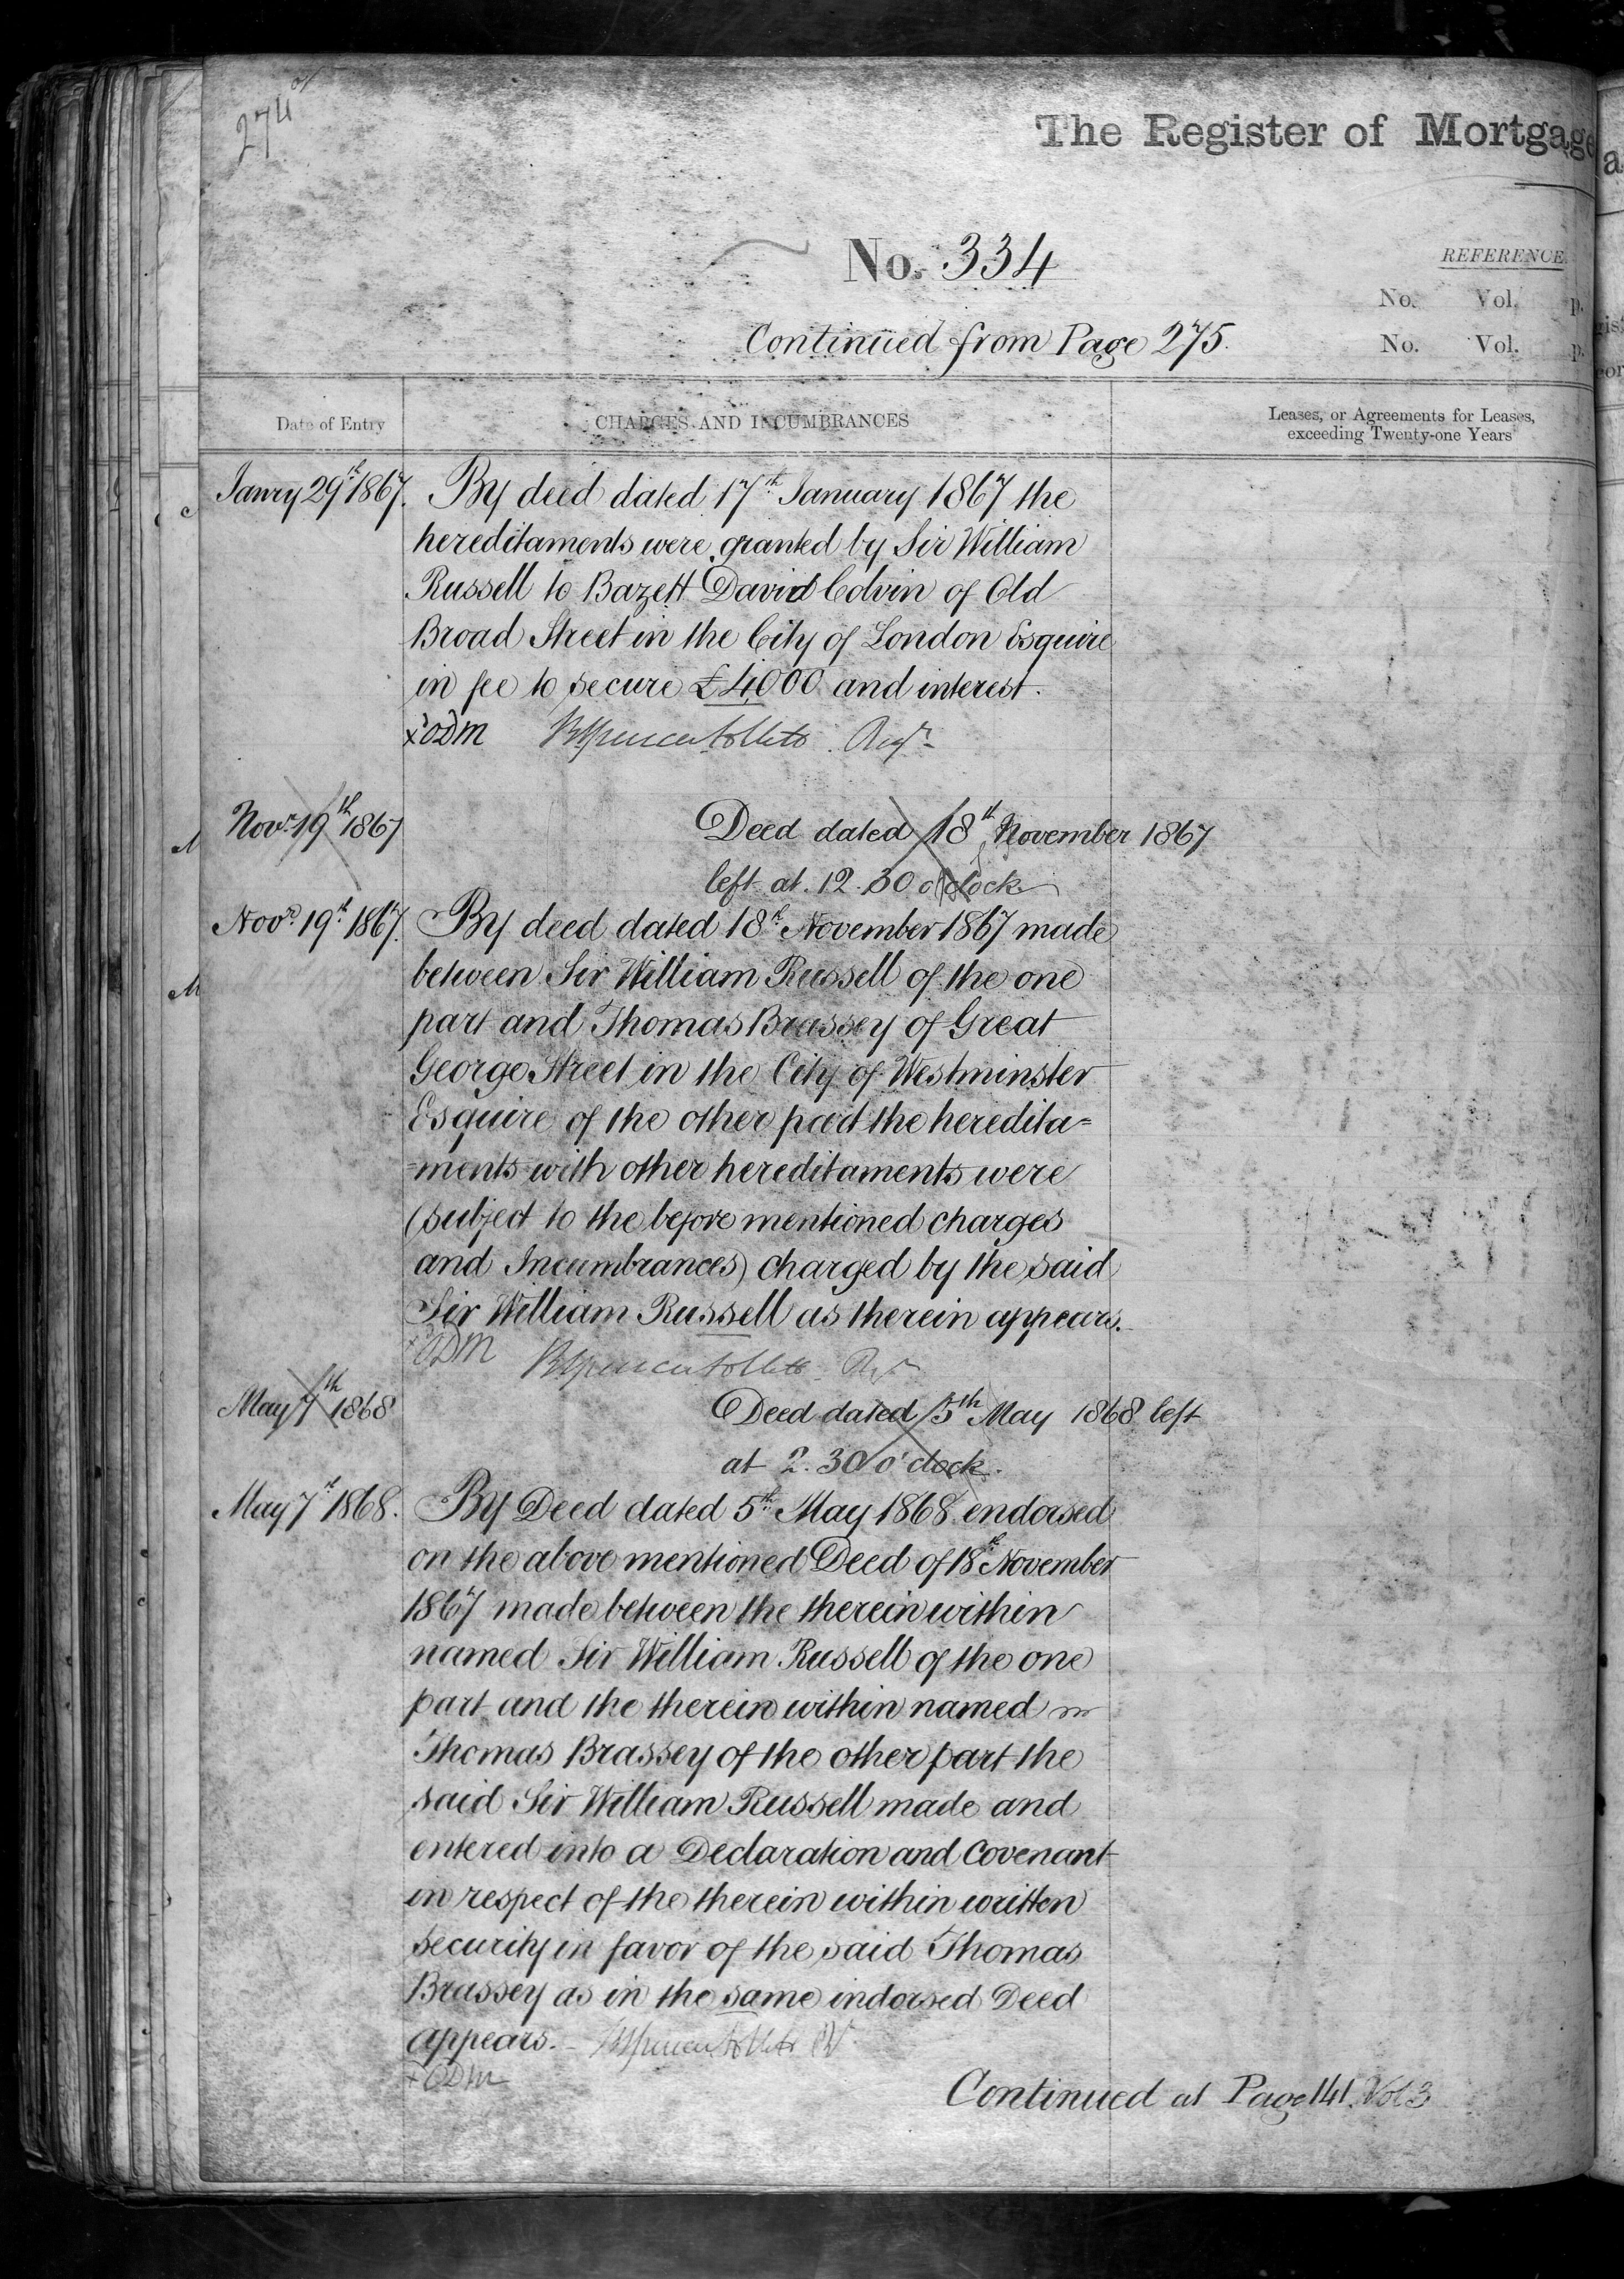 274
The Register of Mortgage
No. 334
REFERENCE
No. Vol. p.
Continued from Page 275.
No. Vol. p.
Date of Entry
CHARGES AND INCUMBRANCES
Leases, or Agreements for Leases,
exceeding Twenty-one Years
Janry 29th 1867. By deed dated 17th January 1867 the
hereditaments were granted by Sir William
Russell to Bazett David Colvin of Old
Broad Street in the City of London Esquire
in fee to secure £4,000 and interest.
ODM Regr
Novr 19th 1867 Deed dated 18th November 1867
left at 12.30 o'clock
Novr 19th 1867. By deed dated 18th November 1867 made
between Sir William Russell of the one
part and Thomas Brassey of Great
George Street in the City of Westminster
Esquire of the other part the heredita=
=ments with other hereditaments were
(subject to the before mentioned charges
and Incumbrances) charged by the said
Sir William Russell as therein appears.
ODM Regr
May 7th 1868 Deed dated 5th May 1868 left
at 2.30 o'clock.
May 7th 1868. By Deed dated 5th May 1868 endorsed
on the above mentioned Deed of 18th November
1867 made between the therein within
named Sir William Russell of the one
part and the therein within named
Thomas Brassey of the other part the
said Sir William Russell made and
entered into a Declaration and Covenant
in respect of the therein within written
security in favor of the said Thomas
Brassey as in the same indorsed Deed
appears.
ODM
Continued at Page 141. Vol 3